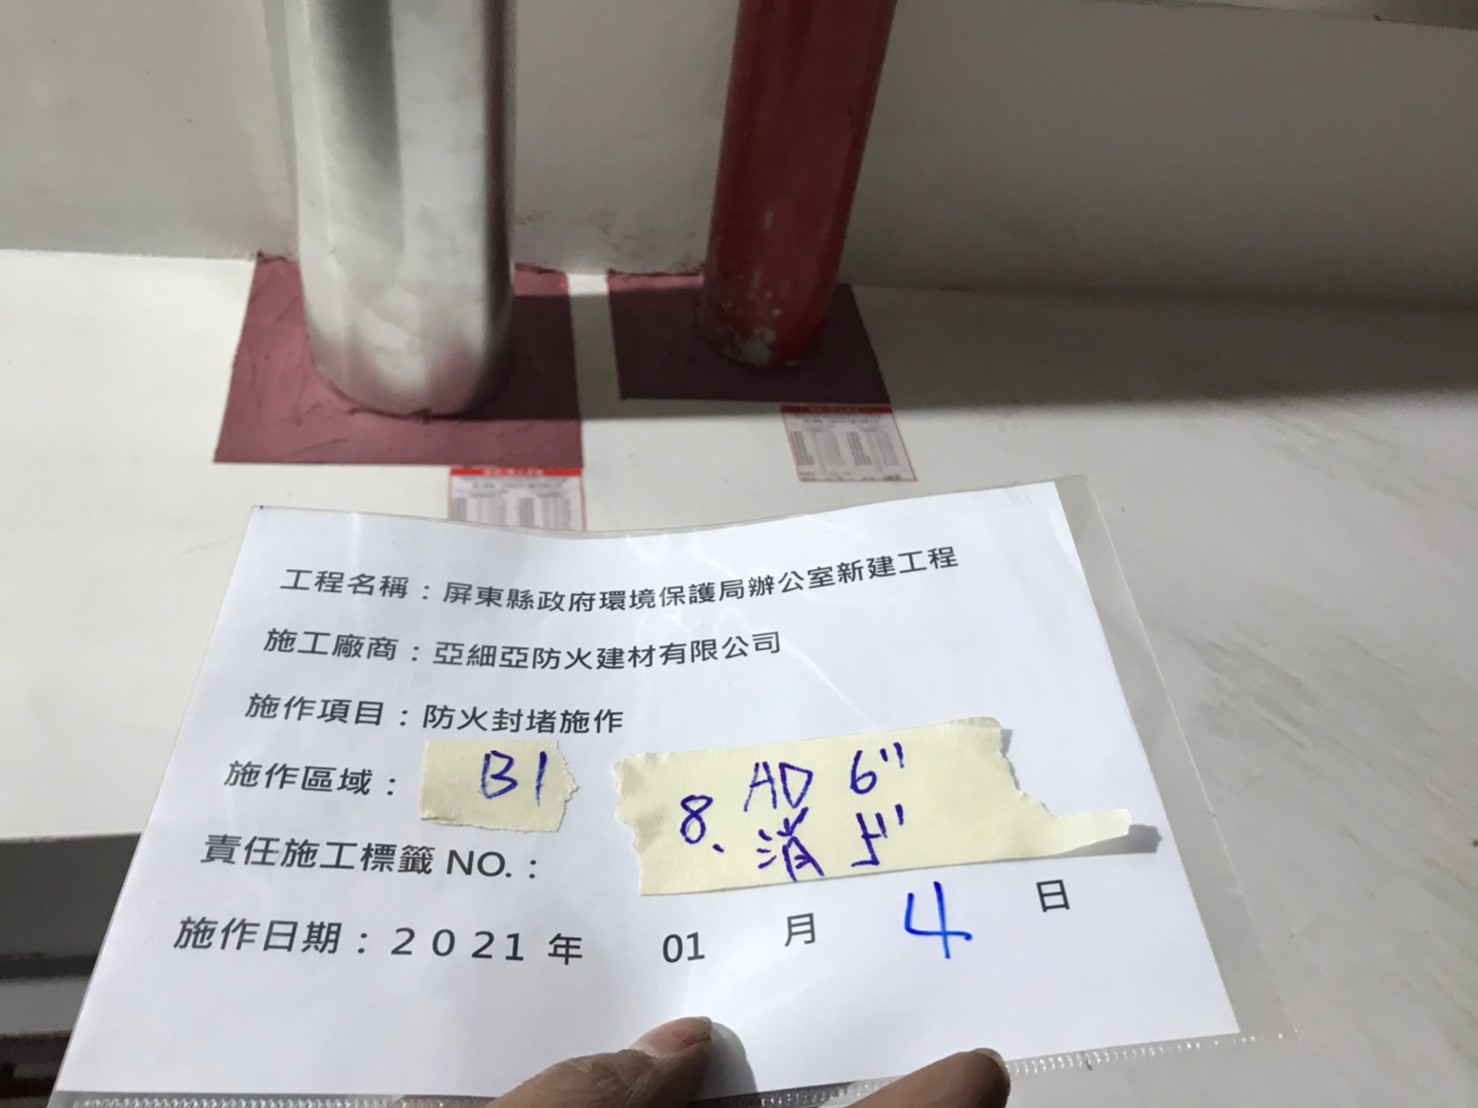 工程名稱：屏東縣政府環境保護局辦公室新建工程
施工廠商：亞細亞防火建材有限公司
施作項目：防火封堵施作
施作區域： B1
8、 AD 6"
消 5"
責任施工標籤 NO.：
施作日期：2021 年 01 月 4 日